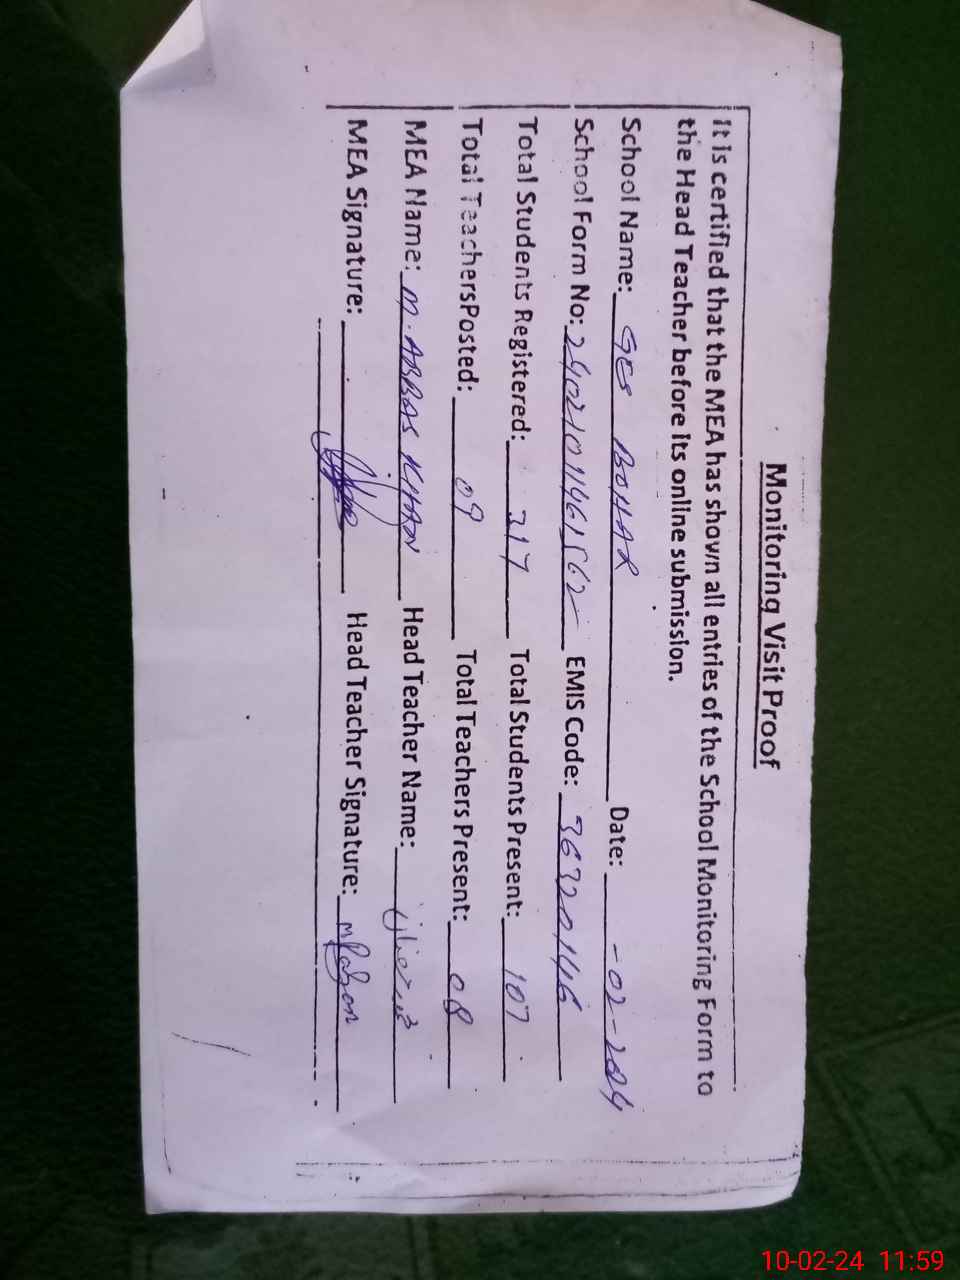 Monitoring Visit Proof
It is certified that the MEA has shown all entries of the School Monitoring Form to
the Head Teacher before its online submission.
School Name: GES BOHAR Date: -02-2024
School Form No: EMIS Code: 36320146
Total Students Registered: 317 Total Students Present: 107
Total TeachersPosted: 09 Total Teachers Present: 08
MEA Name: M. ABBAS KHAN Head Teacher Name:
MEA Signature: Head Teacher Signature:
10-02-24 11:59